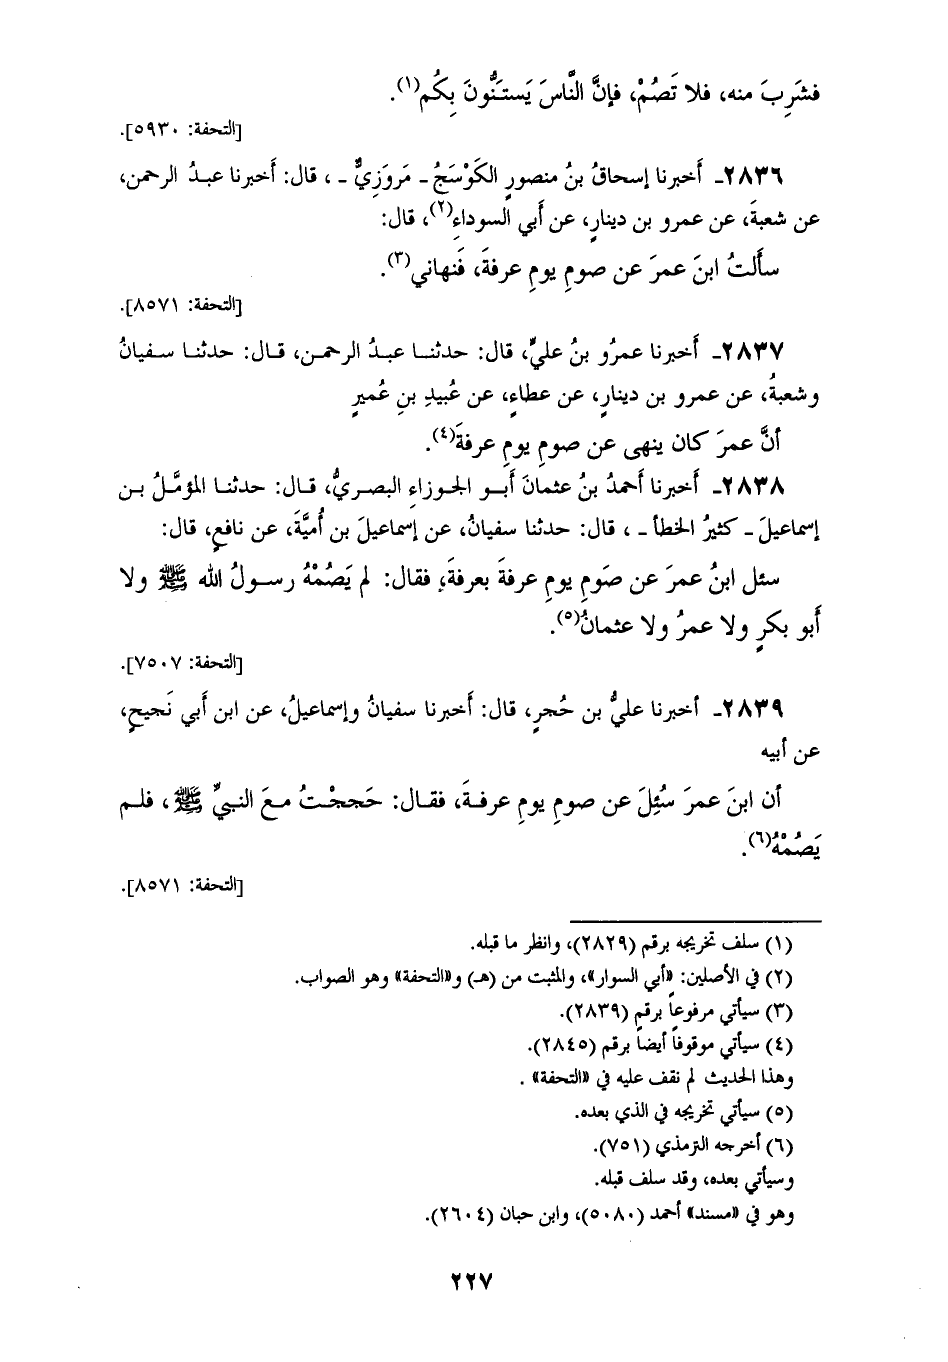 فشَرِبَ منه، فلا تَصُمْ، فإنَّ النَّاسَ يَستَنُّونَ بِكُم(١).
[التحفة: ٥٩٣٠].
٢٨٣٦ـ أَخبرنا إسحاقُ بنُ منصورٍ الكَوْسَجُ ـ مَروَزِيٌّ ـ ، قال: أَخبرنا عبدُ الرحمن،
عن شعبةَ، عن عمرو بن دينارٍ، عن أبي السوداءِ(٢)، قال:
سأَلتُ ابنَ عمرَ عن صومِ يومِ عرفةَ، فَنهاني(٣).
[التحفة: ٨٥٧١].
٢٨٣٧ـ أَخبرنا عمرُو بنُ عليٍّ، قال: حدثنـا عبدُ الرحمـن، قـال: حدثنـا سـفيانُ
وشعبةُ، عن عمرو بن دينارٍ، عن عطاءٍ، عن عُبيدِ بنِ عُميرٍ
أنَّ عمرَ كان ينهى عن صومِ يومِ عرفةَ(٤).
٢٨٣٨ـ أَخبرنا أَحمدُ بنُ عثمانَ أَبـو الجـوزاءِ البصـريُّ، قـال: حدثنـا المؤمَّلُ بـن
إسماعيلَ ـ كثيرُ الخطأ ـ ، قال: حدثنا سفيانُ، عن إسماعيلَ بن أُميَّةَ، عن نافعٍ، قال:
سئل ابنُ عمرَ عن صَومِ يومِ عرفةَ بعرفةَ، فقال: لم يَصُمْهُ رسـولُ الله ﷺ ولا
أَبو بكرٍ ولا عمرُ ولا عثمانُ(٥).
[التحفة: ٧٥٠٧].
٢٨٣٩ـ أخبرنا عليُّ بن حُجرٍ، قال: أَخبرنا سفيانُ وإسماعيلُ، عن ابن أَبي نَجيحٍ،
عن أبيه
أن ابنَ عمرَ سُئِلَ عن صومِ يومِ عرفـةَ، فقـال: حَججْـتُ مـعَ النبـيِّ ﷺ، فلـم
يَصُمْهُ(٦).
[التحفة: ٨٥٧١].
(١) سلف تخريجه برقم (٢٨٢٩)، وانظر ما قبله.
(٢) في الأصلين: «أبي السوار»، والمثبت من (هـ) و«التحفة» وهو الصواب.
(٣) سيأتي مرفوعاً برقم (٢٨٣٩).
(٤) سيأتي موقوفاً أيضاً برقم (٢٨٤٥).
وهذا الحديث لم نقف عليه في «التحفة» .
(٥) سيأتي تخريجه في الذي بعده.
(٦) أخرجه الترمذي (٧٥١).
وسيأتي بعده، وقد سلف قبله.
وهو في «مسند» أحمد (٥٠٨٠)، وابن حبان (٢٦٠٤).
٢٢٧